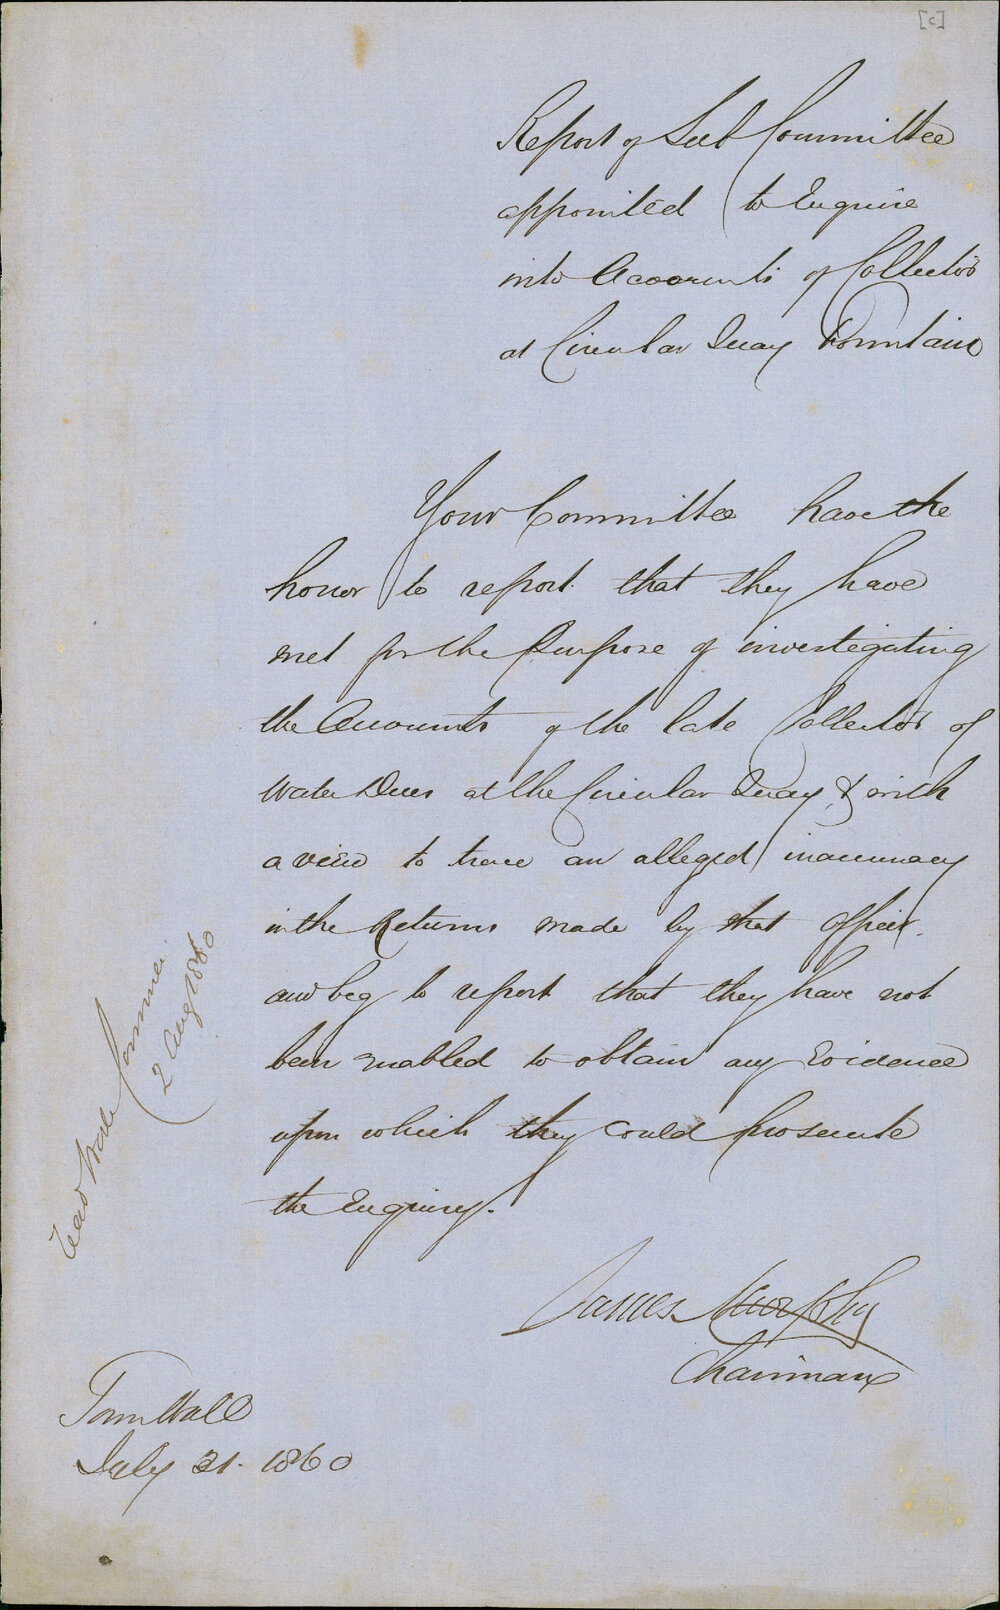 [c]
Report of Sub Committee
appointed to Enquire
into Accounts of Collector
at Circular Quay Fountain
Your Committee have the
honor to report that they have
met for the Purpose of investigating
the Accounts of the late Collector of
Water Dues at the Circular Quay, & with
a view to trace an alleged inaccuracy
in the Returns made by that Officer.
and beg to report that they have not
been enabled to obtain any Evidence
upon which they could prosecute
the Enquiry.
James Murphy
Chairman
Town Hall
July 31. 1860
2 Aug 1860